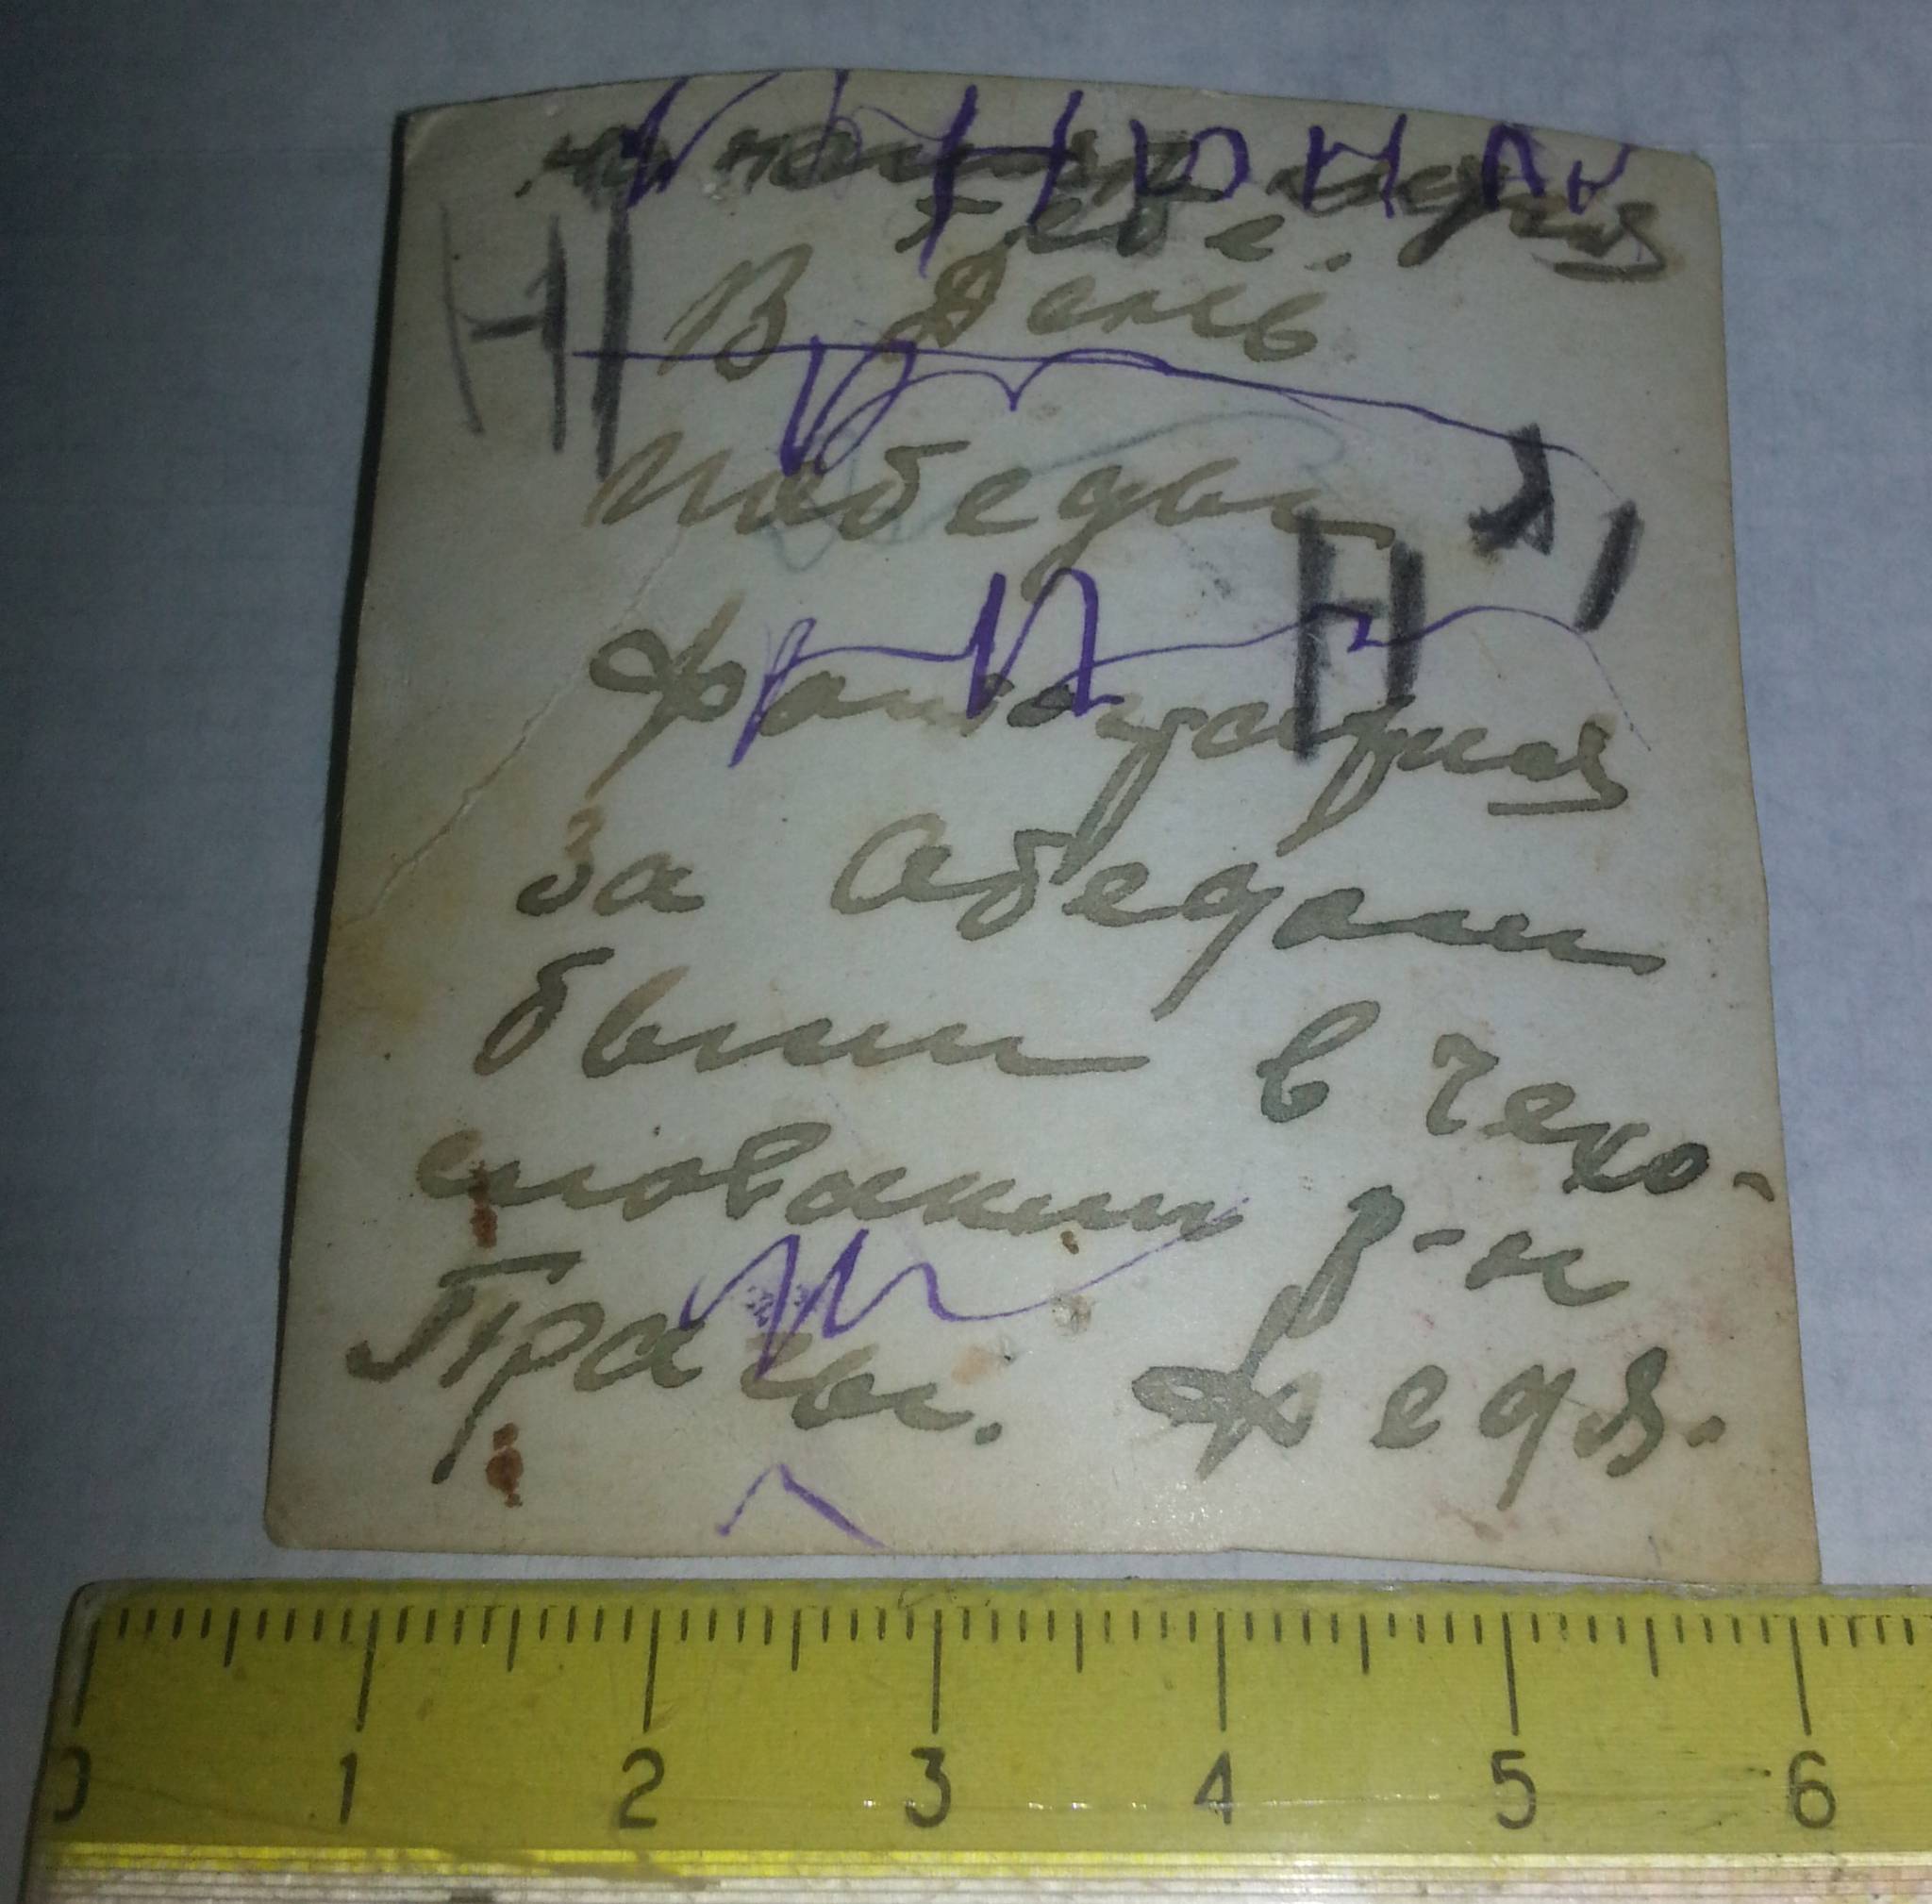 Тебе.
В День
победы
фотография
за Обедом
были в Чехо-
словакии р-н
Праги. Федя.
0 1 2 3 4 5 6